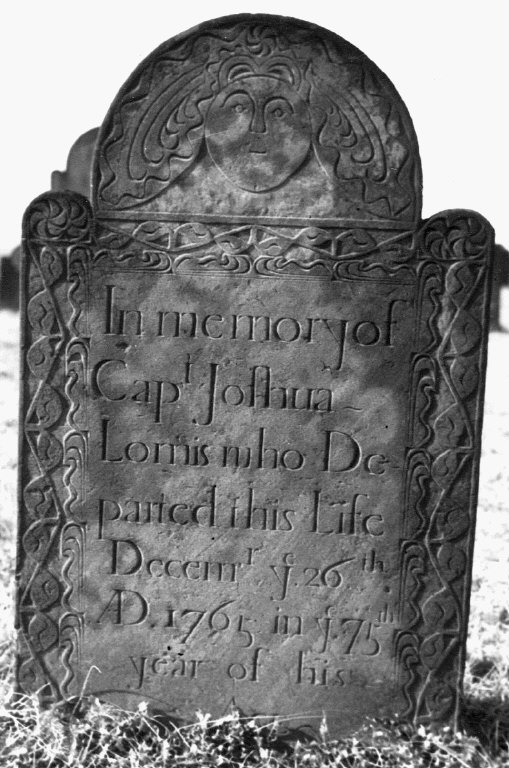 In memory of
Capᵗ Joſhua
Lomis who De-
parted this Life
Decemʳ yᵉ. 26ᵗʰ
AD. 1765 in yᵉ. 75ᵗʰ
year of his